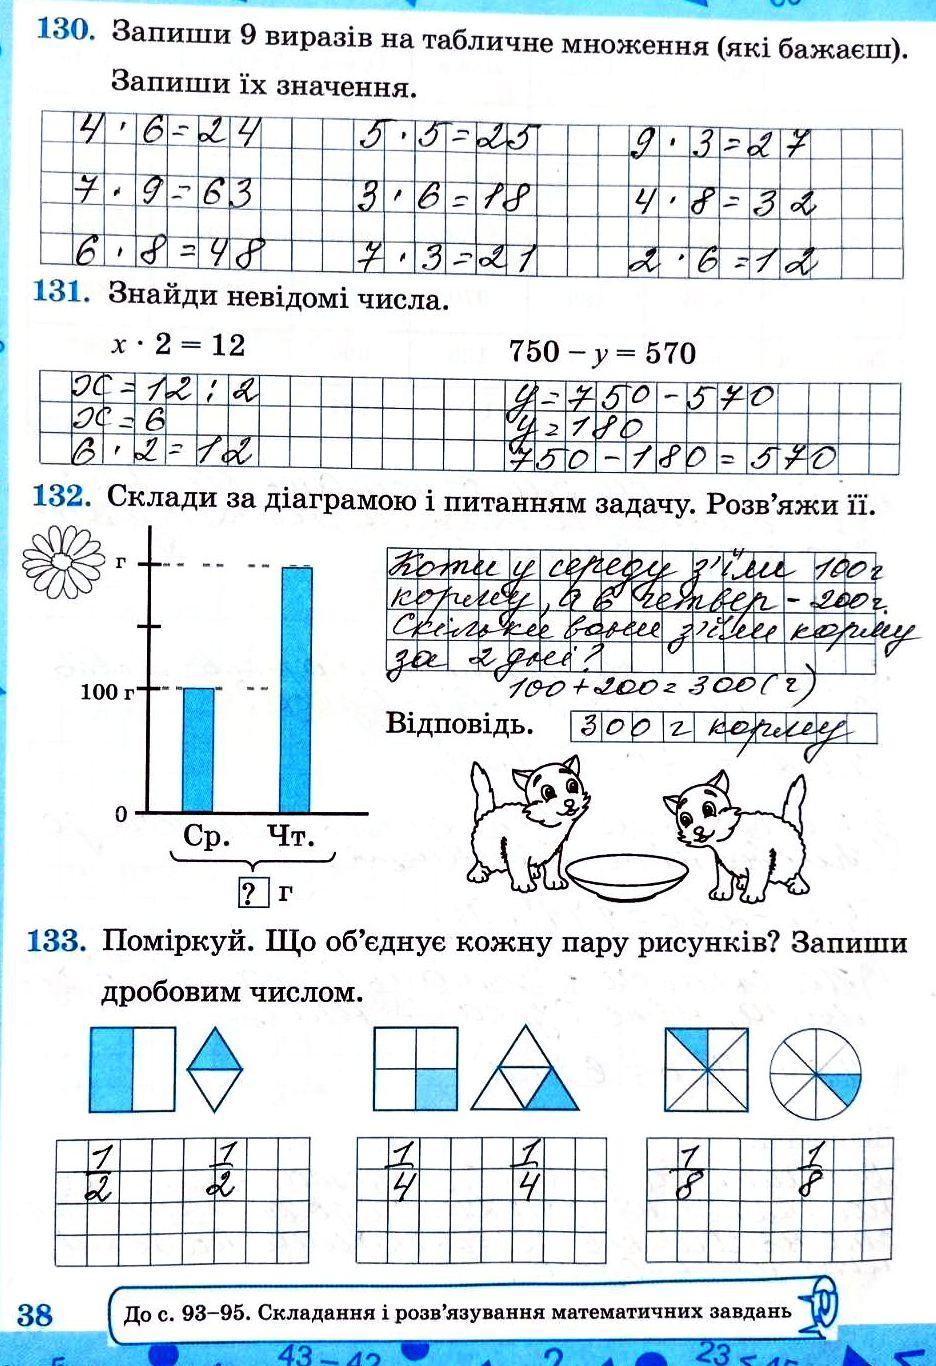 130. Запиши 9 виразів на табличне множення (які бажаєш).
Запиши їх значення.
4 · 6 = 24 5 · 5 = 25 9 · 3 = 27
7 · 9 = 63 3 · 6 = 18 4 · 8 = 32
6 · 8 = 48 7 · 3 = 21 2 · 6 = 12
131. Знайди невідомі числа.
x · 2 = 12 750 − y = 570
x = 12 : 2 y = 750 − 570
x = 6 y = 180
6 · 2 = 12 750 − 180 = 570
132. Склади за діаграмою і питанням задачу. Розв'яжи її.
г
100 г
0
Ср. Чт.
? г
Коти у середу з'їли 100 г
корму, а в четвер – 200 г.
Скільки вони з'їли корму
за 2 дні?
100 + 200 = 300 (г)
Відповідь. 300 г корму
133. Поміркуй. Що об'єднує кожну пару рисунків? Запиши
дробовим числом.
1/2 1/2 1/4 1/4 1/8 1/8
38
До с. 93–95. Складання і розв'язування математичних завдань
43 – 42
2
23 < 45